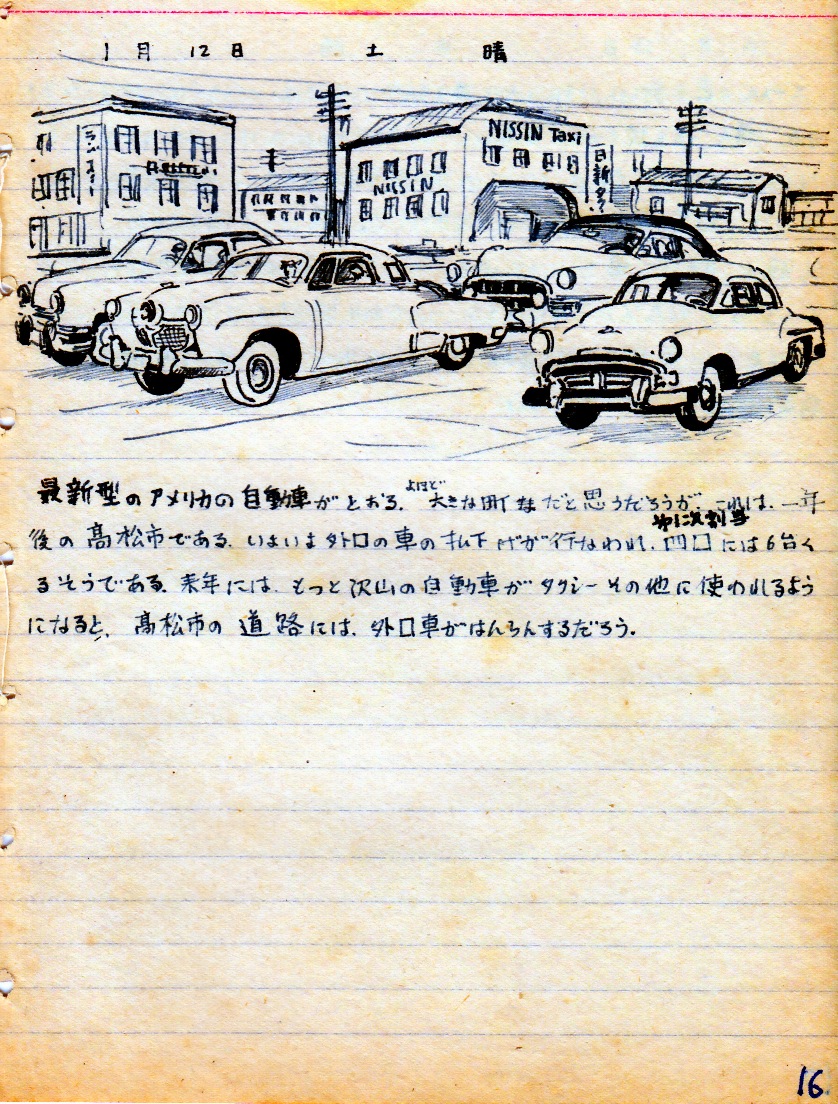 1月 12日 土 晴
NISSIN Taxi
NISSIN
日新タクシー
最新型のアメリカの自動車がとおる。よほど大きな町だと思うだろうが、これは、一年
後の高松市である。いよいよ外口の車の払下げが行なわれ、第1次割当四口には6台く
るそうである。来年には、もっと沢山の自動車がタクシーその他に使われるよう
になると、高松市の道路には、外口車がはんらんするだろう。
16